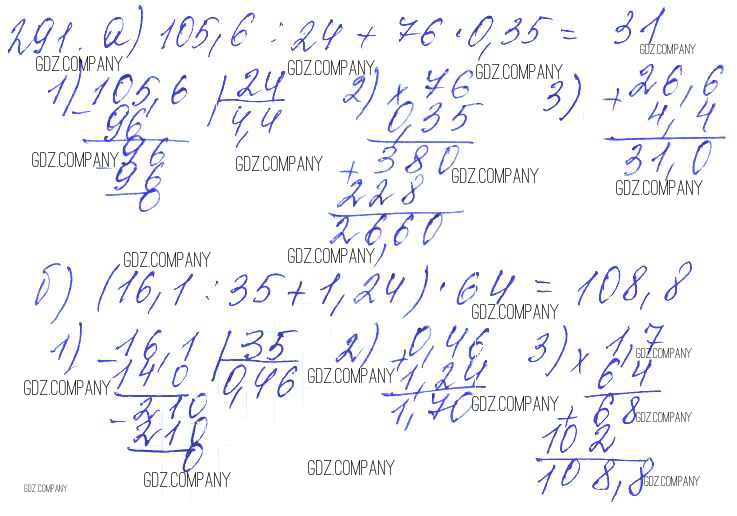 291. а) 105,6 : 24 + 76 · 0,35 = 31
GDZ.COMPANY GDZ.COMPANY GDZ.COMPANY GDZ.COMPANY
1) 105,6 | 24 2) × 76 3) + 26,6
- 96 4,4 0,35 4,4
- 96 + 380 31,0
96 228
0 26,60
GDZ.COMPANY GDZ.COMPANY GDZ.COMPANY GDZ.COMPANY
GDZ.COMPANY GDZ.COMPANY
б) (16,1 : 35 + 1,24) · 64 = 108,8
GDZ.COMPANY
1) - 16,1 | 35 2) + 0,46 3) × 1,7
140 0,46 1,24 64
- 210 1,70 + 68
210 102
0 108,8
GDZ.COMPANY GDZ.COMPANY GDZ.COMPANY GDZ.COMPANY GDZ.COMPANY
GDZ.COMPANY GDZ.COMPANY GDZ.COMPANY GDZ.COMPANY